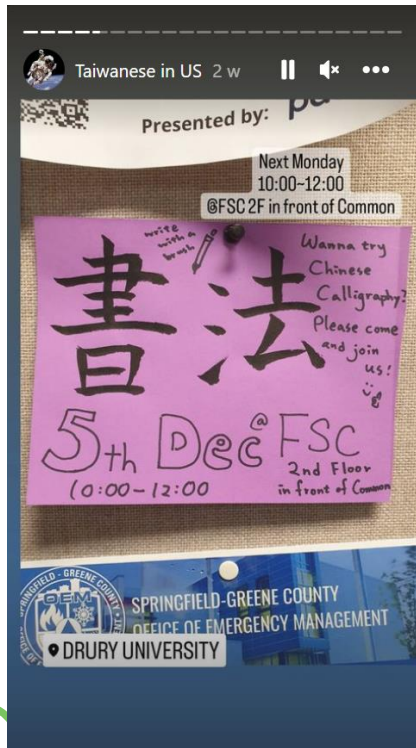 Taiwanese in US 2 w
Presented by:
Next Monday
10:00~12:00
@FSC 2F in front of Common
write
with a
brush
書法
Wanna try
Chinese
Calligraphy?
Please come
and join
us!
5th Dec @ FSC
10:00-12:00
2nd Floor
in front of Common
SPRINGFIELD - GREENE COUNTY
OEM
SPRINGFIELD-GREENE COUNTY
OFFICE OF EMERGENCY MANAGEMENT
DRURY UNIVERSITY